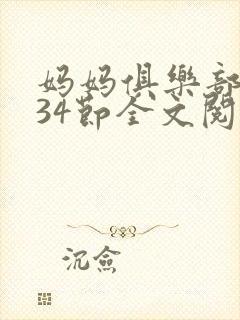 妈妈俱樂部
34节全文閱
沉俭